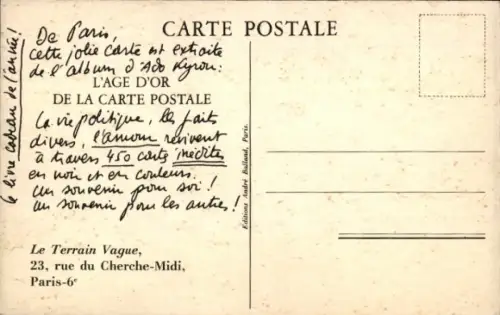 CARTE POSTALE
De Paris,
cette jolie carte est extraite
de l'album d'Ado Kyrou :
L'AGE D'OR
DE LA CARTE POSTALE
La vie politique, les faits
divers, l'amour revivent
à travers 450 cartes inédites
en noir et en couleurs.
Un souvenir pour soi !
Un souvenir pour les autres !
le livre cadeau de l'année !
Le Terrain Vague,
23, rue du Cherche-Midi,
Paris-6e
Editions André Balland, Paris.